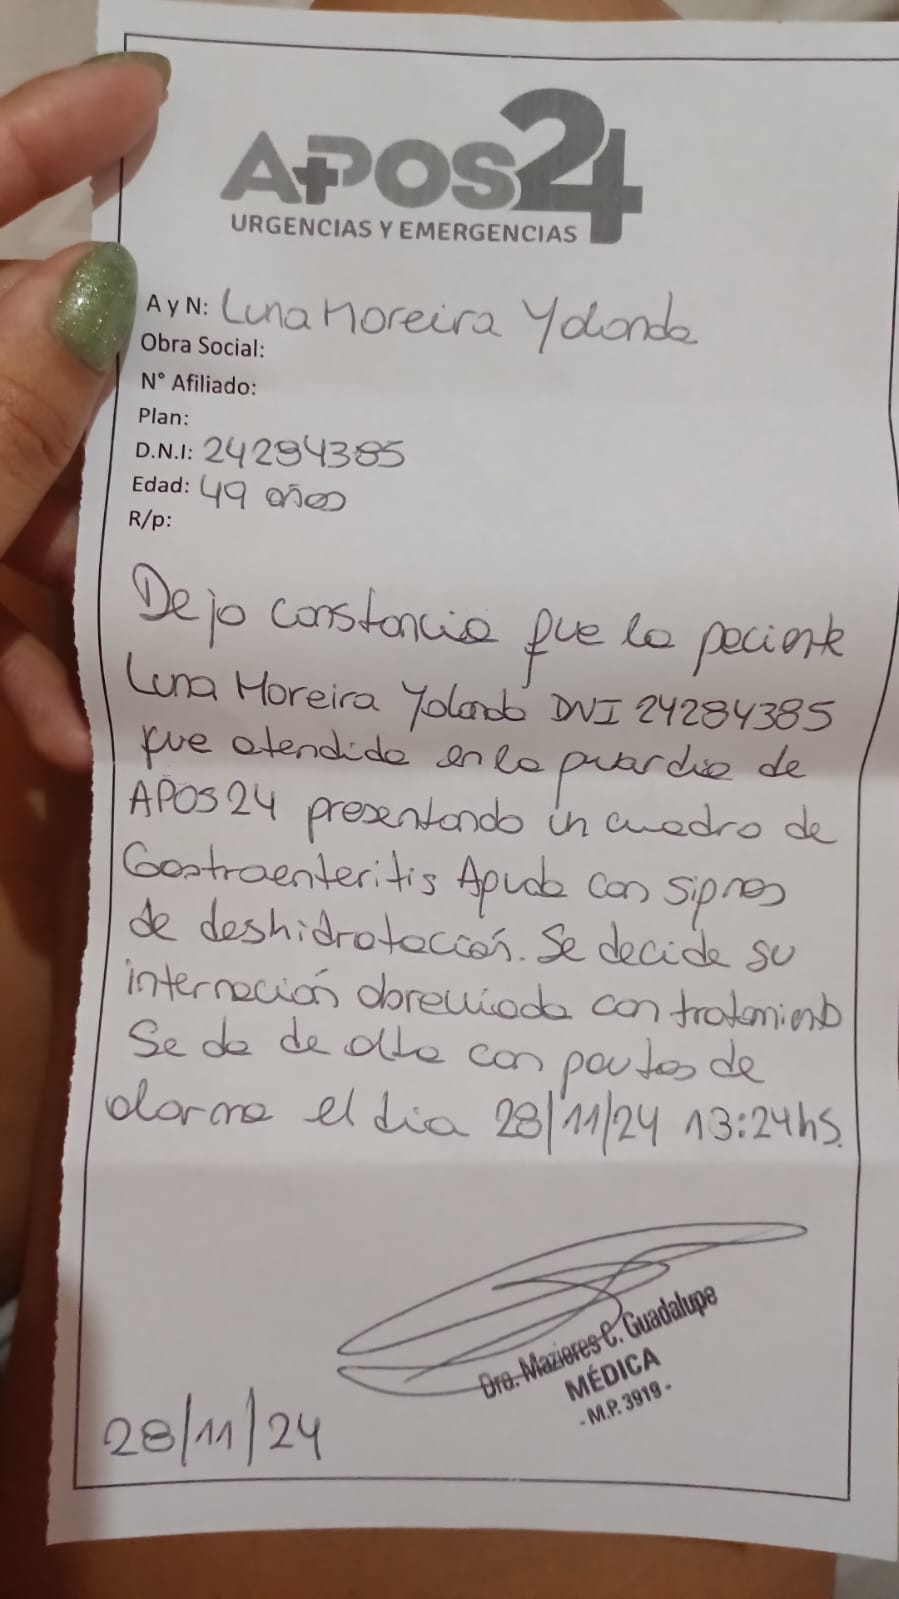 APOS24
URGENCIAS Y EMERGENCIAS
A y N: Luna Moreira Yolanda
Obra Social:
N° Afiliado:
Plan:
D.N.I: 24294385
Edad: 49 años
R/p:
Dejo constancia que la paciente
Luna Moreira Yolanda DNI 24284385
fue atendida en la guardia de
APOS24 presentando un cuadro de
Gastroenteritis Aguda con signos
de deshidratación. Se decide su
internación abreviada con tratamiento
Se da de alta con pautas de
alarma el dia 28/11/24 13:24hs.
Dra. Mazieres C. Guadalupe
MÉDICA
- M.P. 3919 -
28/11/24